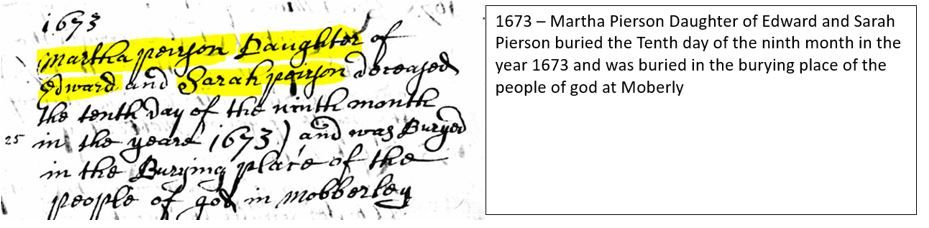 1673
Martha peirson Daughter of
Edward and Sarah peirson deceased
the tenth Day of the ninth month
25 in the yeare 1673) and was Buryed
in the Burying place of the
people of god in Mobberley
1673 – Martha Pierson Daughter of Edward and Sarah
Pierson buried the Tenth day of the ninth month in the
year 1673 and was buried in the burying place of the
people of god at Moberly